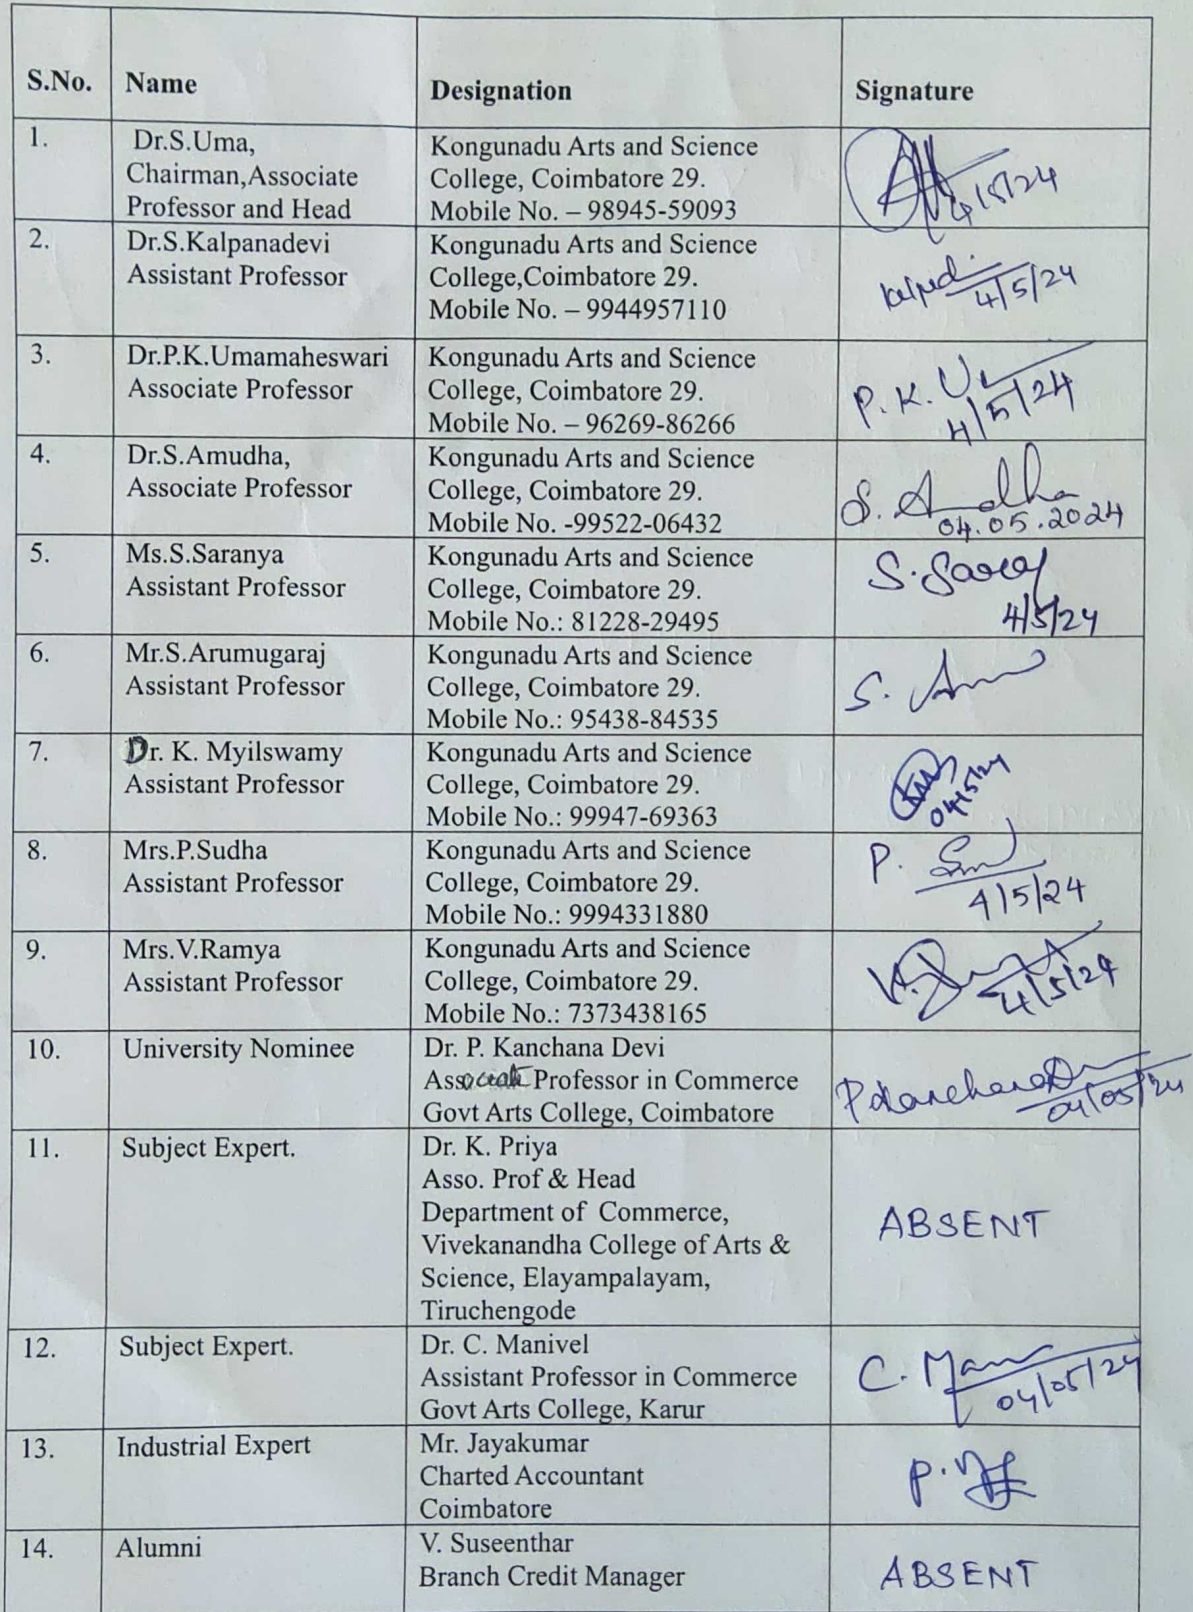 S.No.
Name
Designation
Signature
1.
Dr.S.Uma,
Chairman,Associate
Professor and Head
Kongunadu Arts and Science
College, Coimbatore 29.
Mobile No. – 98945-59093
4/5/24
2.
Dr.S.Kalpanadevi
Assistant Professor
Kongunadu Arts and Science
College,Coimbatore 29.
Mobile No. – 9944957110
4/5/24
3.
Dr.P.K.Umamaheswari
Associate Professor
Kongunadu Arts and Science
College, Coimbatore 29.
Mobile No. – 96269-86266
P. K. U
4/5/24
4.
Dr.S.Amudha,
Associate Professor
Kongunadu Arts and Science
College, Coimbatore 29.
Mobile No. -99522-06432
S. Amudha
04.05.2024
5.
Ms.S.Saranya
Assistant Professor
Kongunadu Arts and Science
College, Coimbatore 29.
Mobile No.: 81228-29495
S.
4/5/24
6.
Mr.S.Arumugaraj
Assistant Professor
Kongunadu Arts and Science
College, Coimbatore 29.
Mobile No.: 95438-84535
S.
7.
Dr. K. Myilswamy
Assistant Professor
Kongunadu Arts and Science
College, Coimbatore 29.
Mobile No.: 99947-69363
04/5/24
8.
Mrs.P.Sudha
Assistant Professor
Kongunadu Arts and Science
College, Coimbatore 29.
Mobile No.: 9994331880
P.
4/5/24
9.
Mrs.V.Ramya
Assistant Professor
Kongunadu Arts and Science
College, Coimbatore 29.
Mobile No.: 7373438165
4/5/24
10.
University Nominee
Dr. P. Kanchana Devi
Associate Professor in Commerce
Govt Arts College, Coimbatore
04/05/24
11.
Subject Expert.
Dr. K. Priya
Asso. Prof & Head
Department of Commerce,
Vivekanandha College of Arts &
Science, Elayampalayam,
Tiruchengode
ABSENT
12.
Subject Expert.
Dr. C. Manivel
Assistant Professor in Commerce
Govt Arts College, Karur
C.
04/05/24
13.
Industrial Expert
Mr. Jayakumar
Charted Accountant
Coimbatore
P.
14.
Alumni
V. Suseenthar
Branch Credit Manager
ABSENT